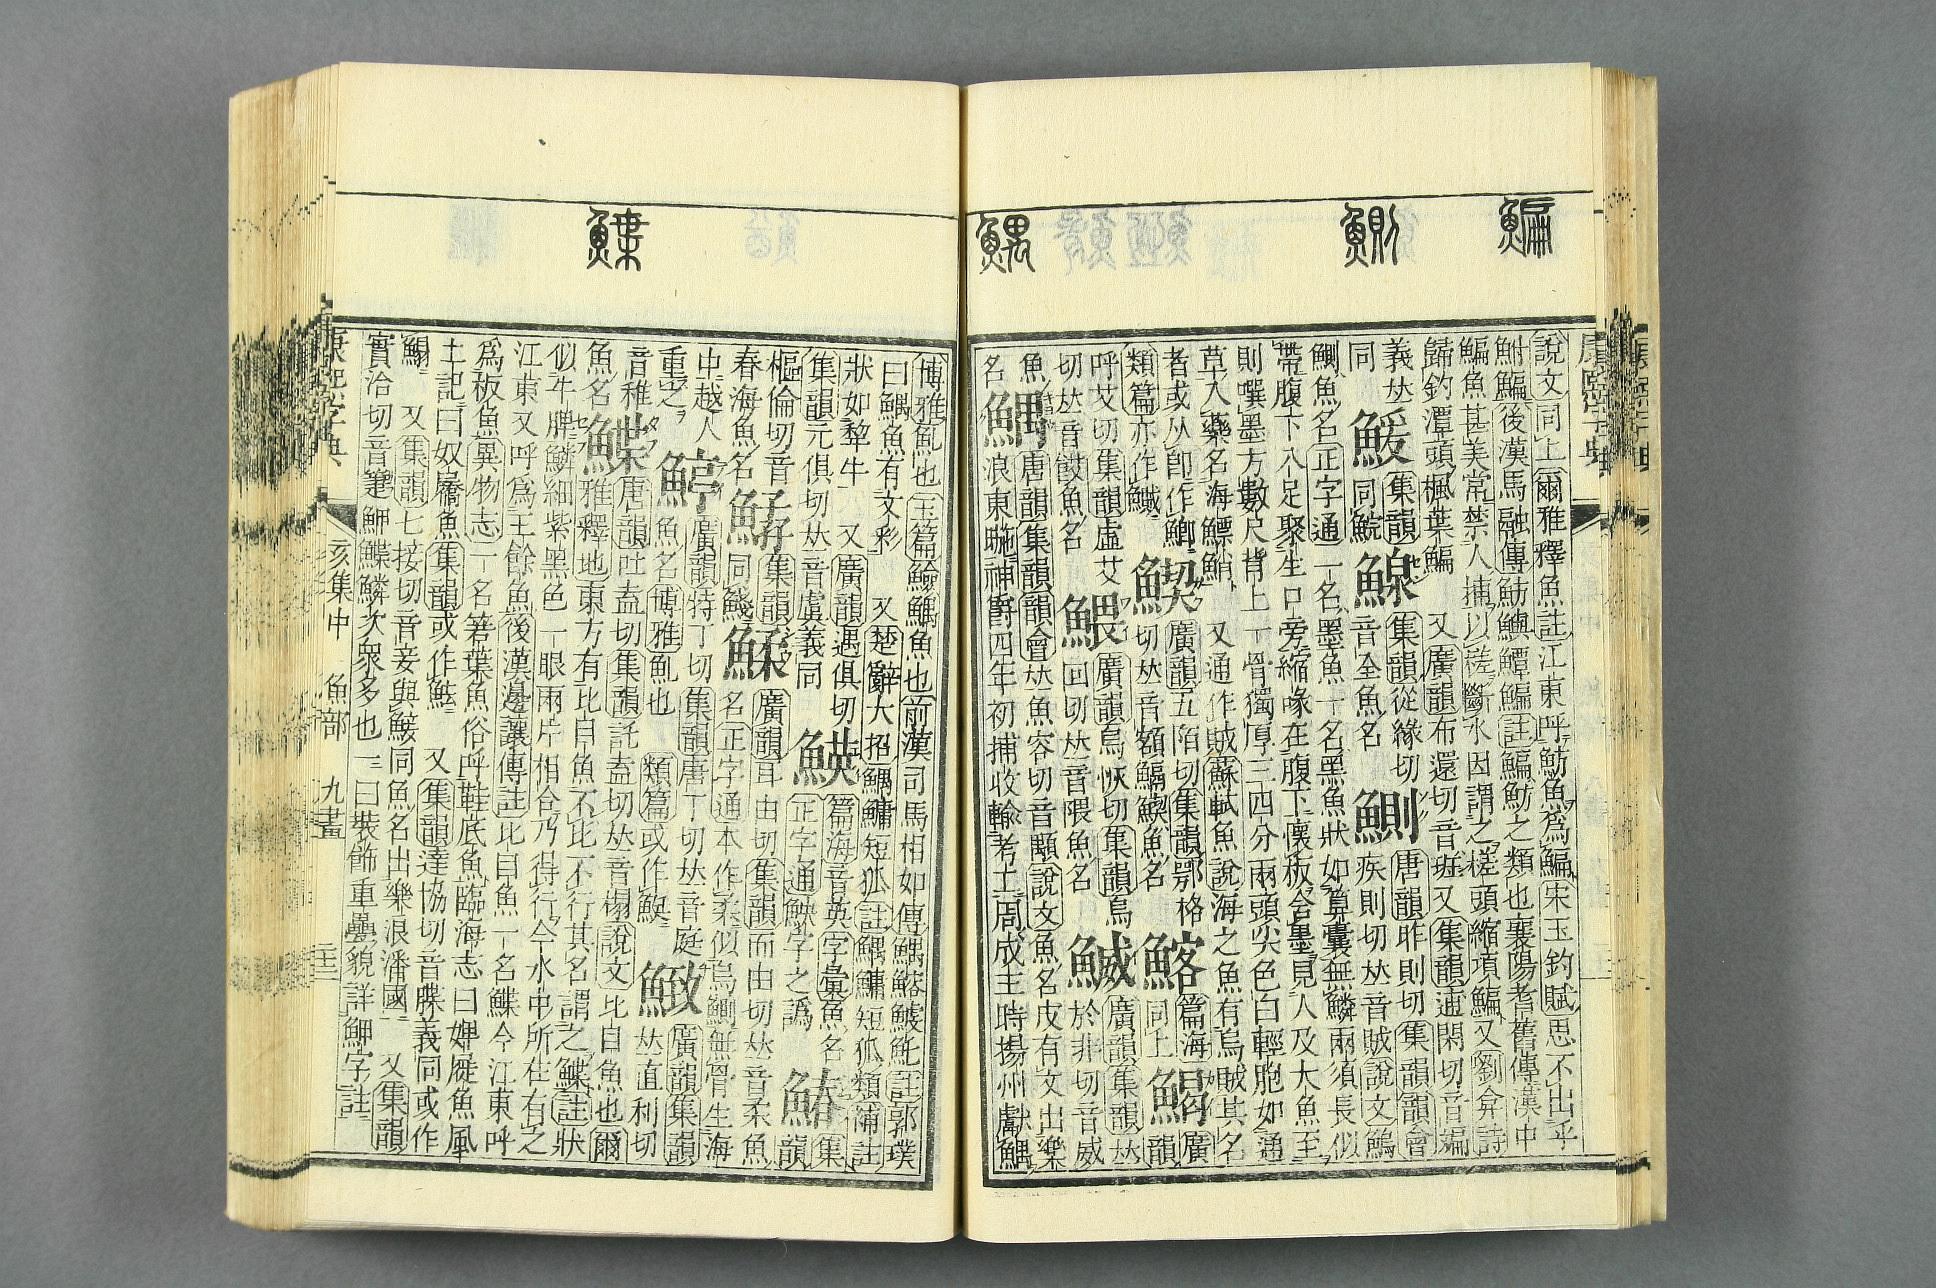 鯿
鰂
鰅
說文同上爾雅釋魚註江東呼魴魚為鯿宋玉釣賦思不出乎
鮒鯿後漢馬融傳魴鱮鱏鯿註鯿魴之類也襄陽耆舊傳漢中
鯿魚甚美常禁人捕以槎斷水因謂之槎頭縮項鯿又劉弇詩
歸釣潭頭楓葉鯿 又廣韻布還切音班又集韻逋閑切音編
義𠀤同 鰀 集韻同鯇 鰁 集韻從緣切音全魚名 鰂 唐韻昨則切集韻韻會疾則切𠀤音賊說文鰞
鰂魚名正字通一名墨魚一名黑魚狀如算囊無鱗兩須長似
帶腹下八足聚生口旁縮喙在腹下懷板含墨見人及大魚至
則噀墨方數尺背上一骨獨厚三四分兩頭尖色白輕脆如通
草入藥名海鰾鮹 又通作賊蘇軾魚說海之魚有烏賊其名
者或从卽作鯽類篇亦作鱡 廣韻五陌切集韻鄂格切𠀤音額 魚名 篇海同上 廣韻
呼艾切集韻虛艾切𠀤音餀魚名 鰃 廣韻烏恢切集韻烏回切𠀤音隈魚名 鰄 廣韻集韻𠀤於非切音威
魚名 鰅 唐韻集韻韻會𠀤魚容切音顒說文魚名皮有文出樂浪東暆神爵四年初捕收輸考工周成王時揚州獻鰅
鰈
博雅 也玉篇 鰅魚也前漢司馬相如傳鰅鰫鰬魠註郭璞
曰鰅魚有文彩 又楚辭大招鰅鱅短狐註鰅鱅短狐類蒲註
狀如犂牛 又廣韻遇俱切集韻元俱切𠀤音虞義同 篇海音英字彙魚名正字通 字之譌 鰆 集韻
樞倫切音春海魚名 集韻同 鰇 廣韻耳由切集韻而由切𠀤音柔魚名正字通本作柔似烏鰂無骨生海
中越人重之 廣韻特丁切集韻唐丁切𠀤音庭魚名博雅 也 類篇或作 廣韻集韻𠀤直利切
音稚魚名 鰈 唐韻吐盍切集韻託盍切𠀤音榻說文比目魚也爾雅釋地東方有比目魚不比不行其名謂之鰈註狀
似牛脾鱗細紫黑色一眼兩片相合乃得行今水中所在有之
江東又呼為王餘魚後漢邊讓傳註比目魚一名鰈今江東呼
為板魚異物志一名箬葉魚俗呼鞋底魚臨海志曰婢屣魚風
土記曰奴屩魚集韻或作魼 又集韻達協切音牒義同或作
又集韻七接切音妾與鯜同魚名出樂浪潘國 又集韻
實洽切音箑鰈鱗次衆多也一曰裝飾重疊貌詳鉀字註
康熙字典 亥集中 魚部 九畫